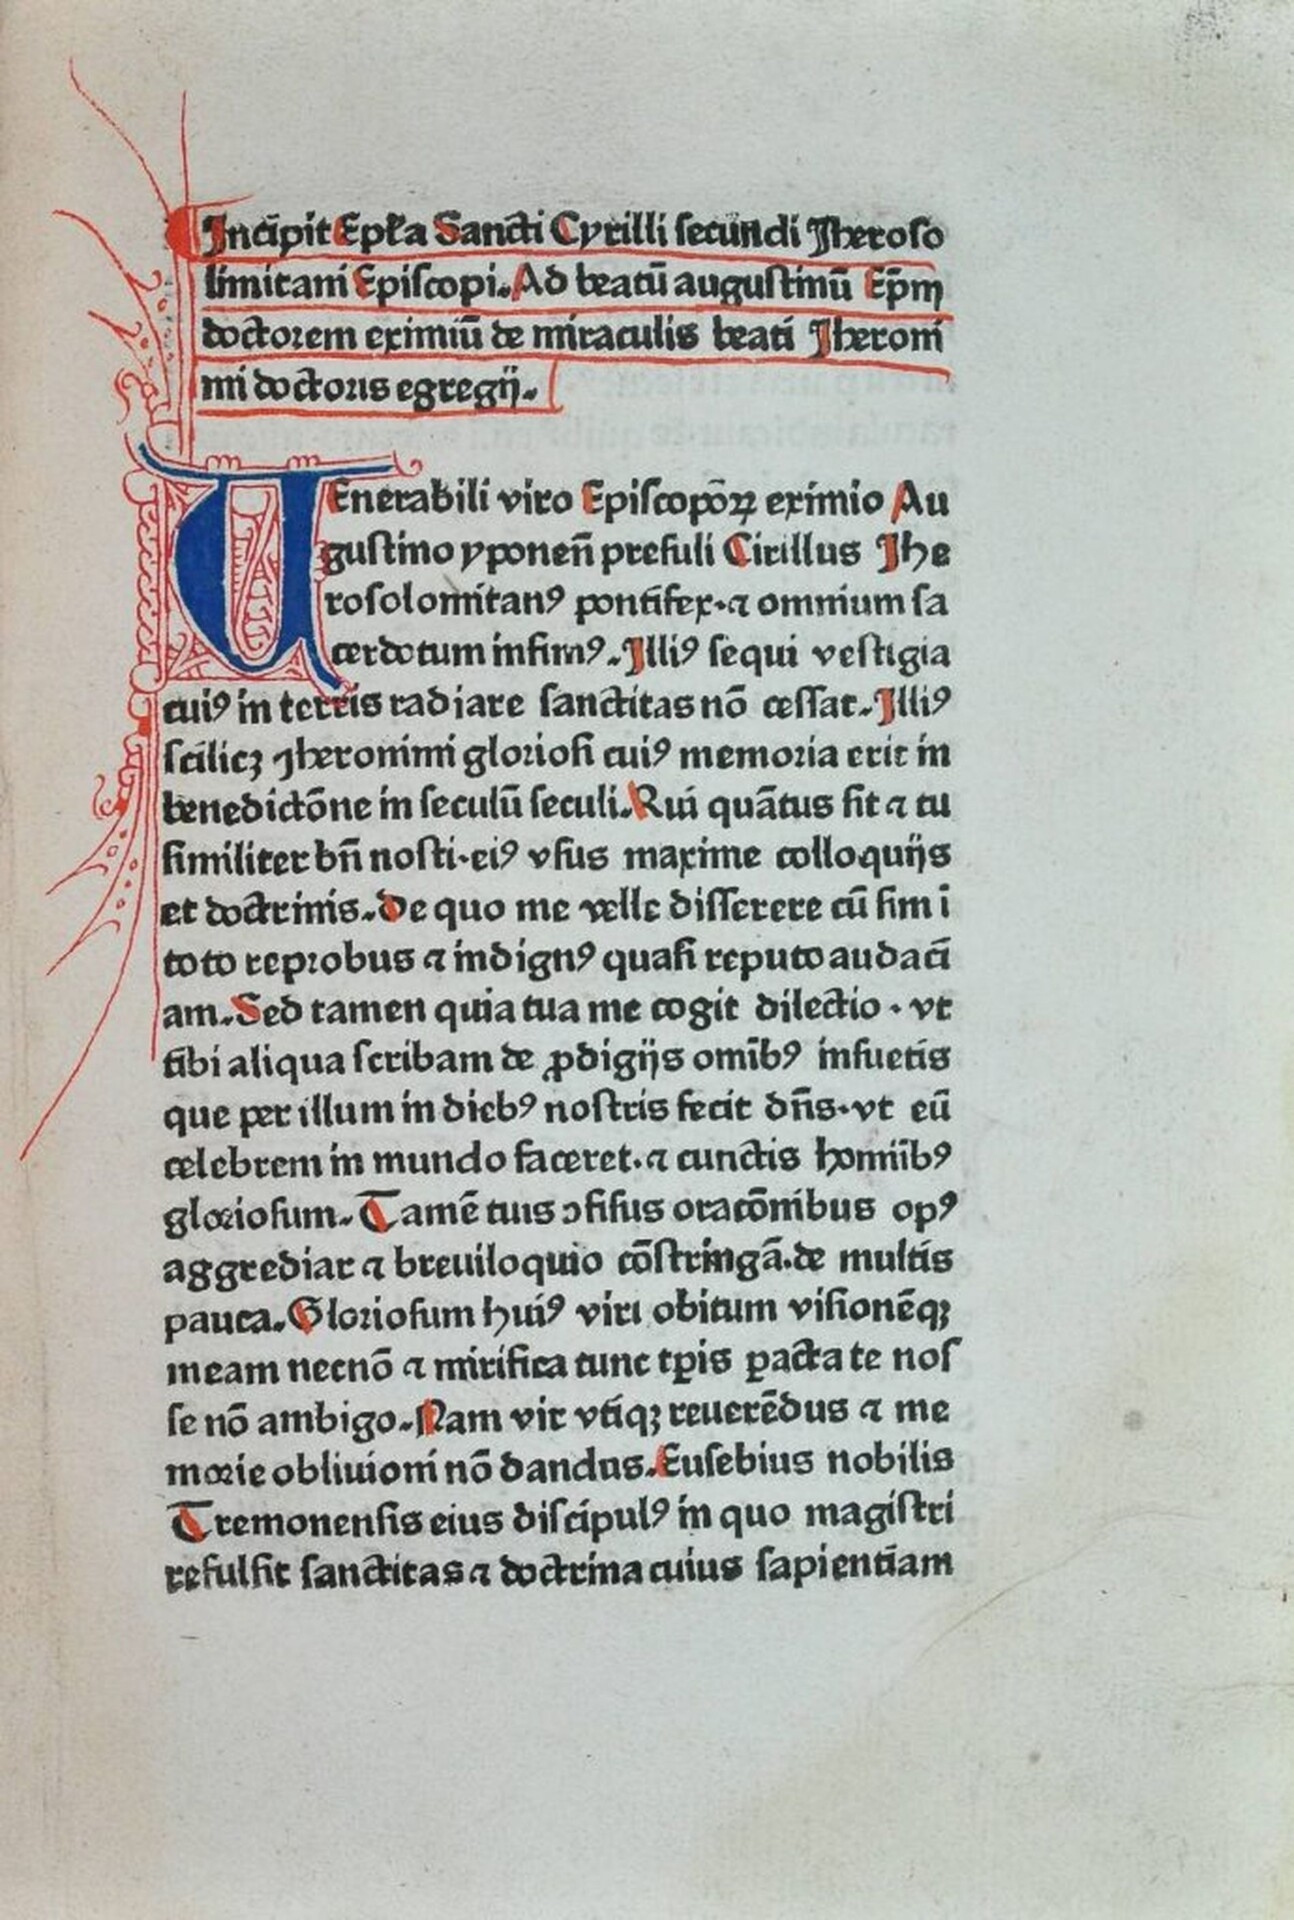 Incipit Ep̄ła Sancti Cyrilli secundi Jheroso
limitani Episcopi. Ad beatū augustinū Ep̄m
doctorem eximiū de miraculis beati Jheroni
mi doctoris egregij.
VEnerabili viro Episcopōꝝ eximio Au
gustino yponeñ presuli Cirillus Jhe
rosolomitanꝰ pontifex. ⁊ omnium sa
cerdotum infimꝰ. Illiꝰ sequi vestigia
cuiꝰ in terris radiare sanctitas nō cessat. Illiꝰ
scilicꝫ Jheronimi gloriosi cuiꝰ memoria erit in
benedictōne in seculū seculi. Rui quātus sit ⁊ tu
similiter bn̄ nosti. eiꝰ vsus maxime colloquijs
et doctrinis. De quo me velle disserere cū sim ī
toto reprobus ⁊ indignꝰ quasi reputo audaci
am. Sed tamen quia tua me cogit dilectio. vt
tibi aliqua scribam de ꝓdigijs omībꝰ insuetis
que per illum in diebꝰ nostris fecit dn̄s. vt eū
celebrem in mundo faceret. ⁊ cunctis homīibꝰ
gloriosum. Tamē tuis ↄfisus oratōnibus opꝰ
aggrediar ⁊ breuiloquio cōstringā. de multis
pauca. Gloriosum huiꝰ viri obitum visionēqꝫ
meam necnō ⁊ mirifica tunc tp̄is ꝑacta te nos
se nō ambigo. Nam vir vtiqꝫ reuerēdus ⁊ me
morie obliuioni nō dandus. Eusebius nobilis
Tremonensis eius discipulꝰ in quo magistri
refulsit sanctitas ⁊ doctrina cuius sapientiam